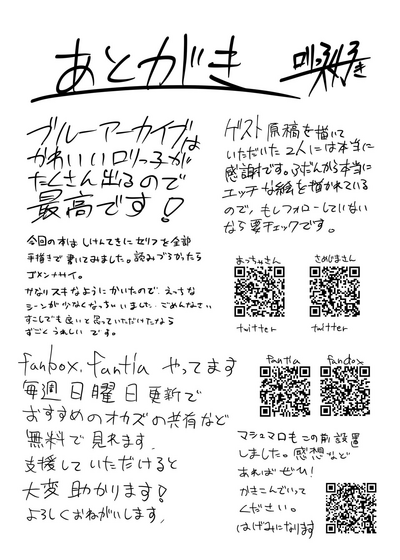 あとがき
ブルーアーカイブは
かわいいロリっ子が
たくさん出るので
最高です!
今回の本はしけんてきにセリフを全部
手描きで書いてみました。読みづらかったら
ゴメンナサイ。
かなりスキなようにかいたので、えっちな
シーンが少なくなっちゃいました。ごめんなさい
すこしでも良いと思っていただけたなら
すごくうれしいです。
ゲスト原稿を描いて
いただいた2人には本当に
感謝です。ふだんから本当に
エッチな絵を描かれている
ので、もしフォローしていない
なら要チェックです。
まっちゃさん
さめじまさん
twitter
twitter
fanbox、fantia やってます
毎週日曜日更新で
おすすめのオカズの共有など
無料で見れます。
支援していただけると
大変助かります!
よろしくおねがいします。
fantia
fanbox
マシュマロもこの前設置
しました。感想など
あればぜひ!
かきこんでいって
ください。
はげみになります